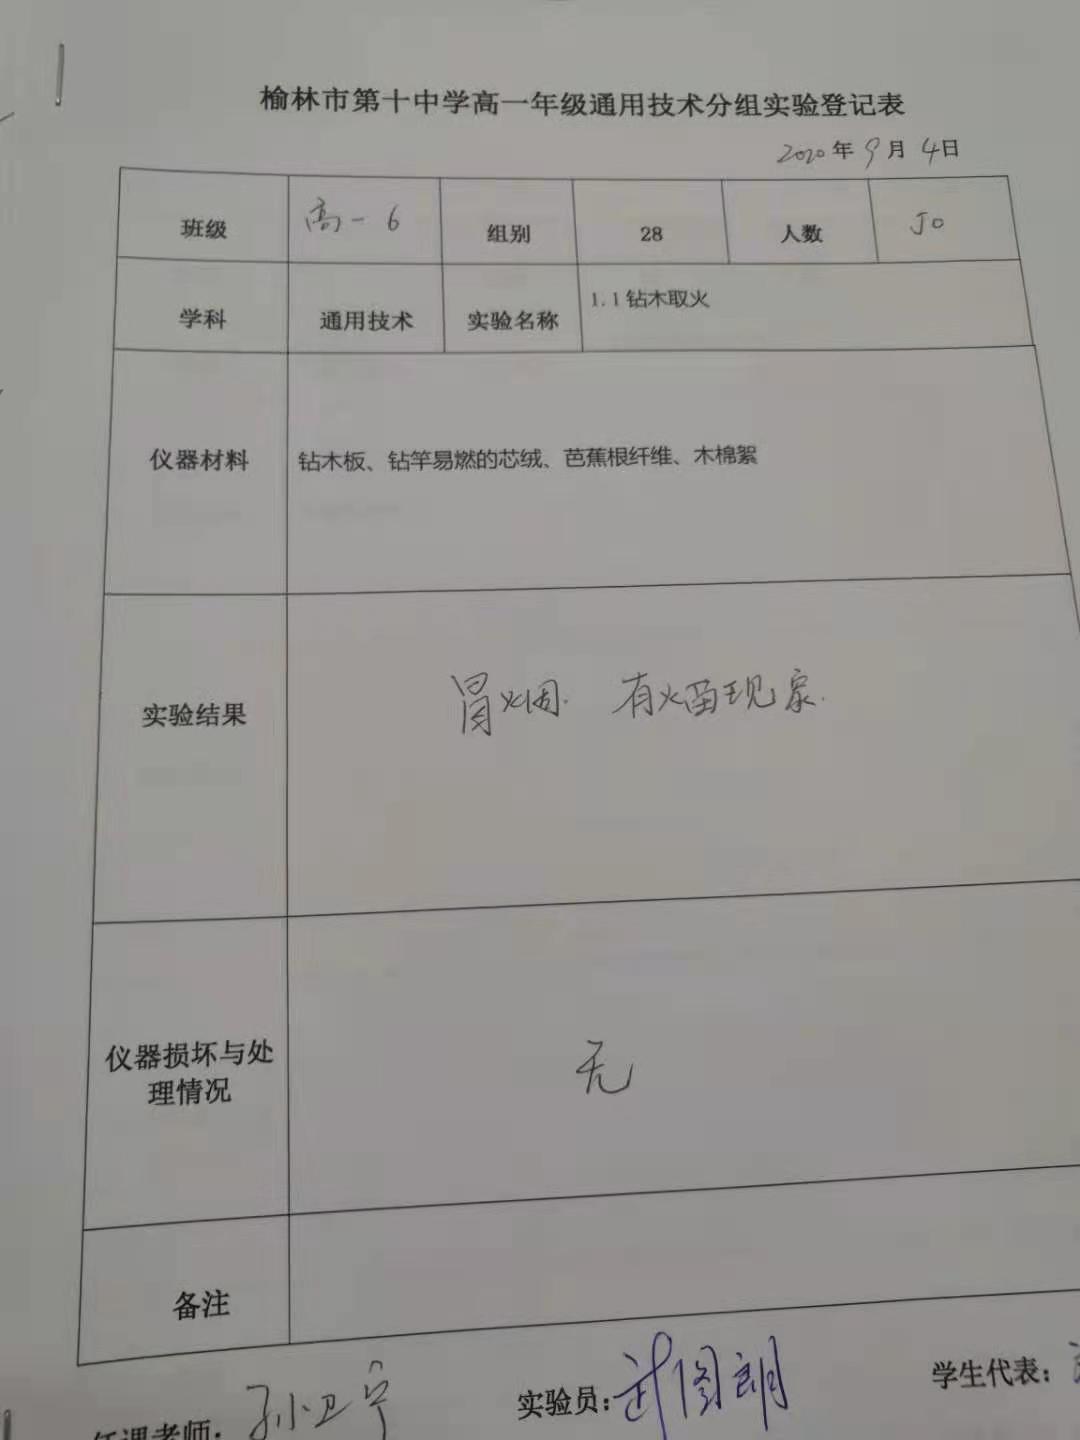 榆林市第十中学高一年级通用技术分组实验登记表
2020年9月4日
班级 高一6 组别 28 人数 50
学科 通用技术 实验名称 1.1钻木取火
仪器材料 钻木板、钻竿易燃的芯绒、芭蕉根纤维、木棉絮
实验结果 冒烟. 有火苗现象.
仪器损坏与处
理情况
无
备注
任课老师: 孙卫宁 实验员: 武图朗 学生代表: